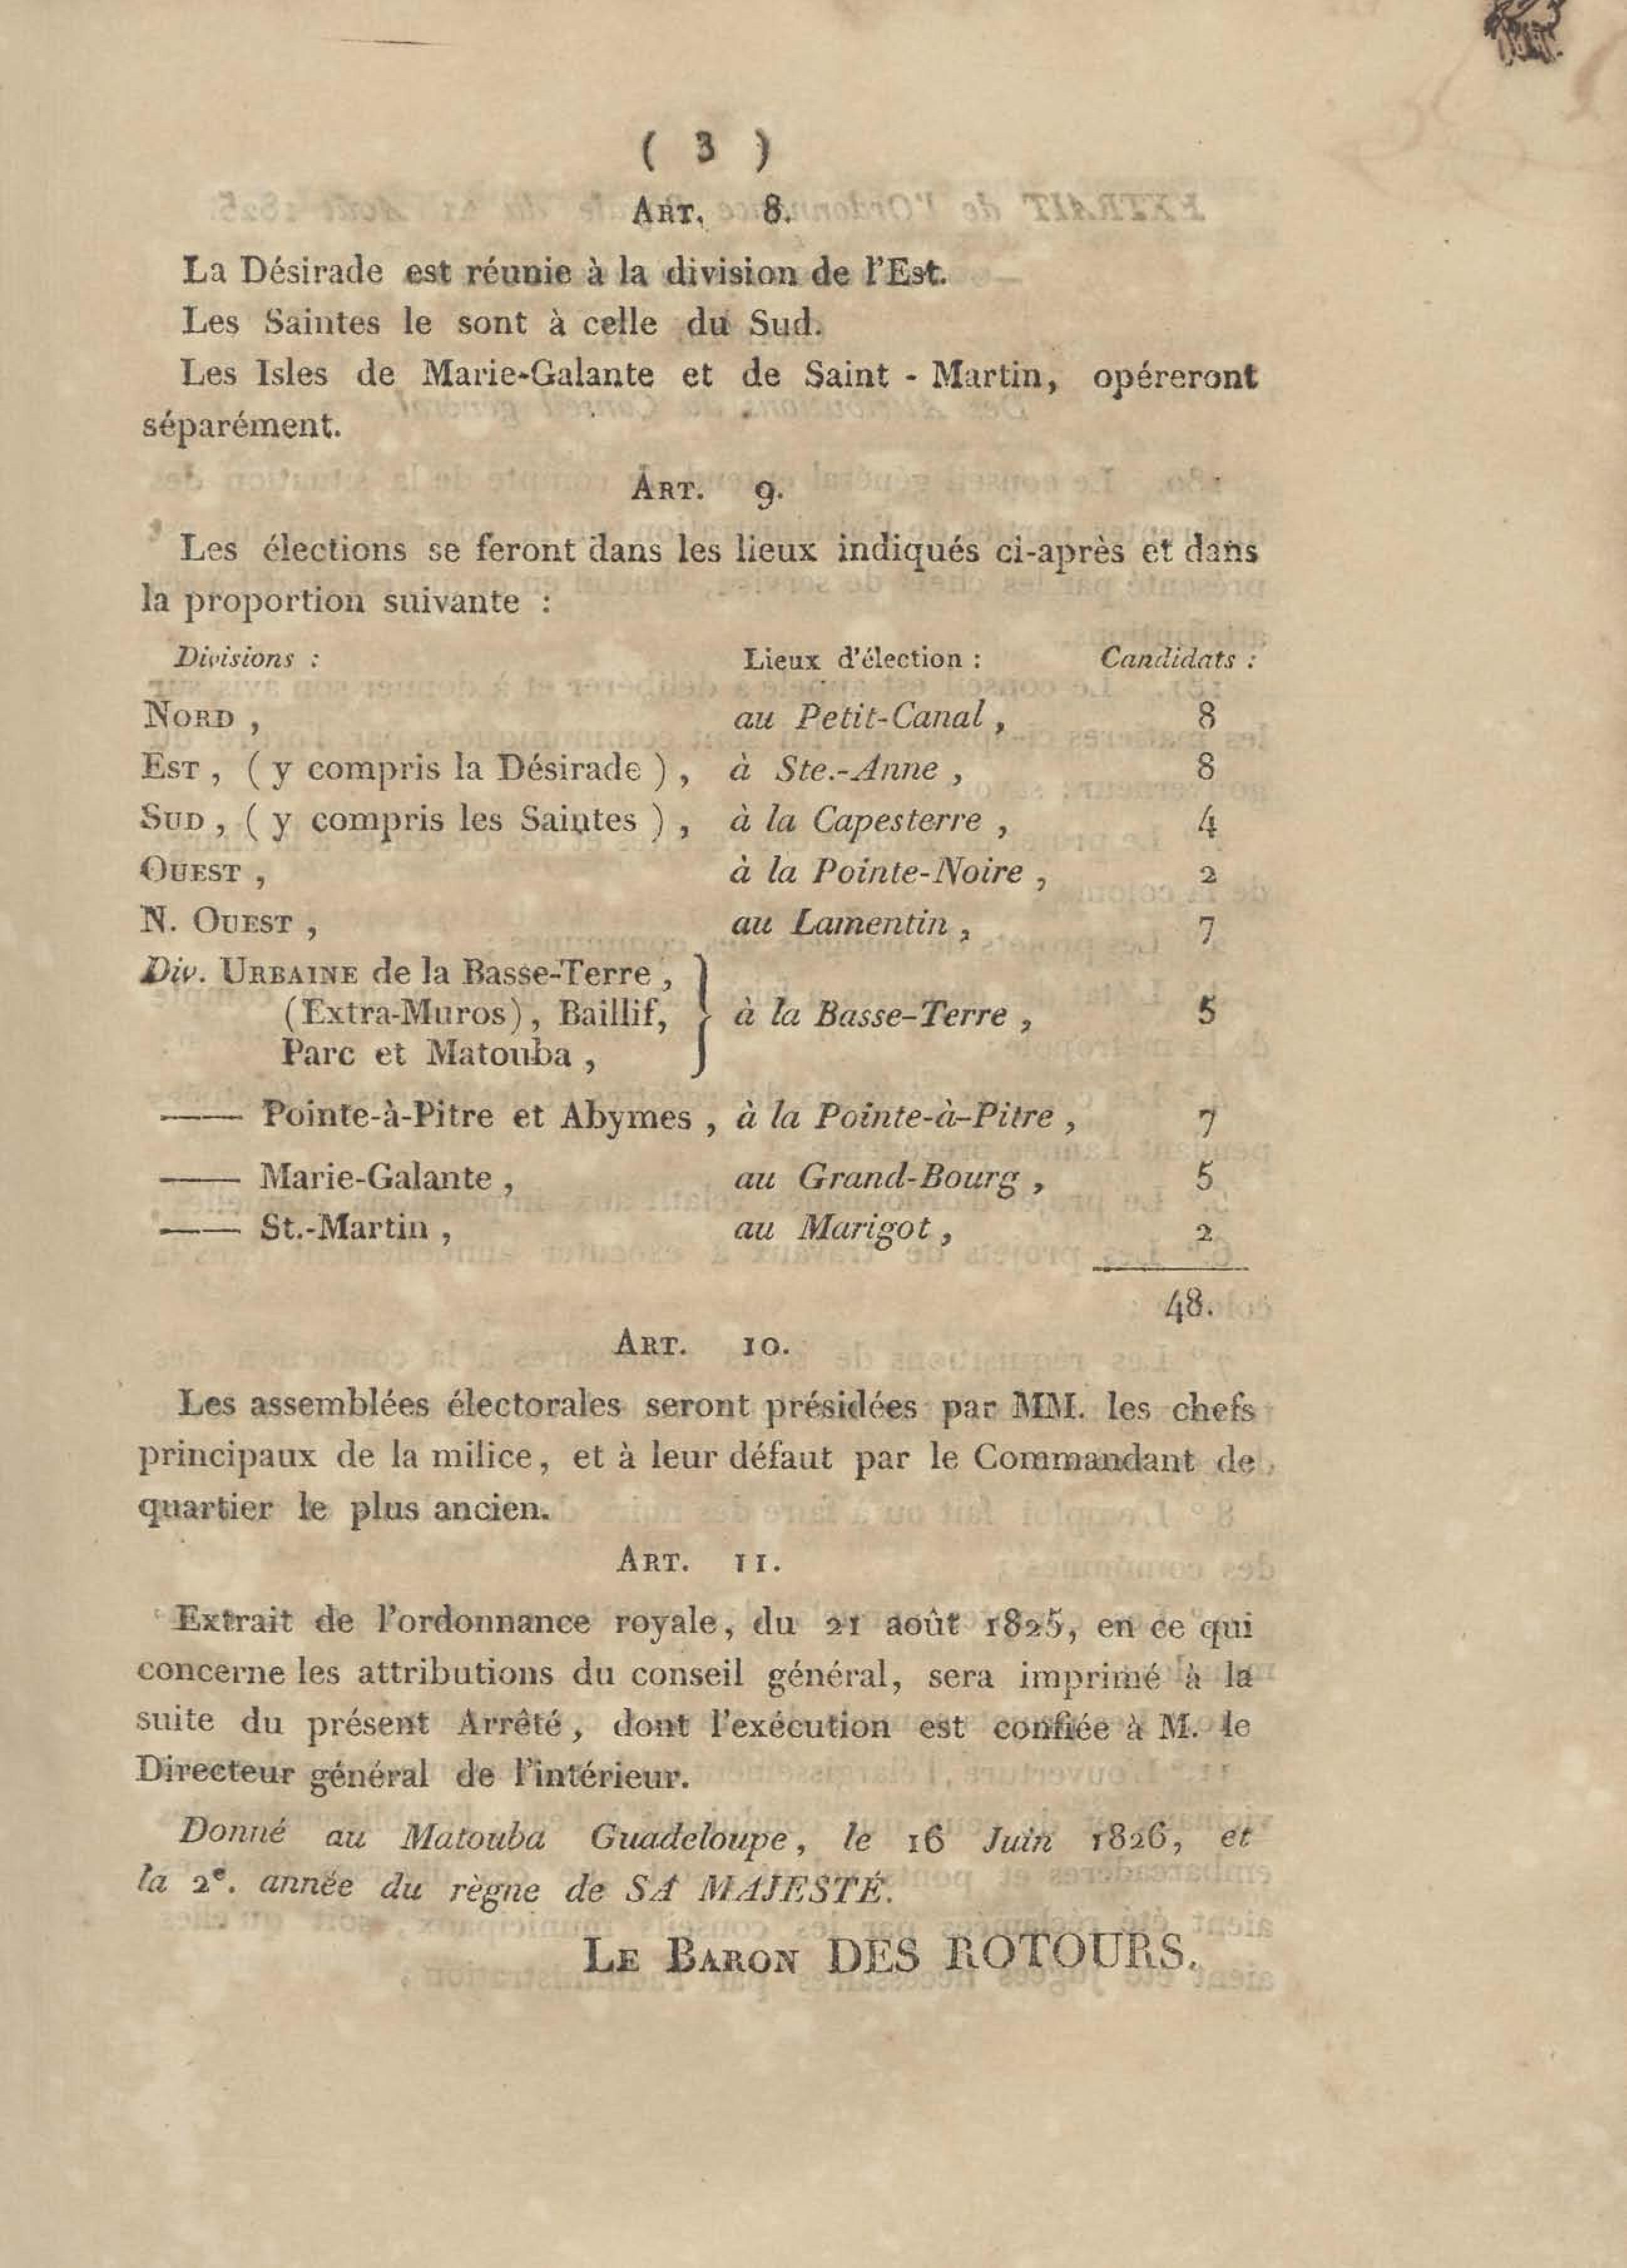 ( 3 )
ART. 8.
La Désirade est réunie à la division de l'Est.
Les Saintes le sont à celle du Sud.
Les Isles de Marie-Galante et de Saint - Martin, opéreront
séparément.
ART. 9.
Les élections se feront dans les lieux indiqués ci-après et dans
la proportion suivante :
Divisions : Lieux d'élection : Candidats :
NORD , au Petit-Canal , 8
EST , ( y compris la Désirade ) , à Ste.-Anne , 8
SUD , ( y compris les Saintes ) , à la Capesterre , 4
OUEST , à la Pointe-Noire , 2
N. OUEST , au Lamentin , 7
Div. URBAINE de la Basse-Terre ,
(Extra-Muros) , Baillif, } à la Basse-Terre , 5
Parc et Matouba ,
—— Pointe-à-Pitre et Abymes , à la Pointe-à-Pitre , 7
—— Marie-Galante , au Grand-Bourg , 5
—— St.-Martin , au Marigot , 2
48.
ART. 10.
Les assemblées électorales seront présidées par MM. les chefs
principaux de la milice, et à leur défaut par le Commandant de
quartier le plus ancien.
ART. 11.
Extrait de l'ordonnance royale, du 21 août 1825, en ce qui
concerne les attributions du conseil général, sera imprimé à la
suite du présent Arrêté, dont l'exécution est confiée à M. le
Directeur général de l'intérieur.
Donné au Matouba Guadeloupe, le 16 Juin 1826, et
la 2e. année du règne de SA MAJESTÉ.
LE BARON DES ROTOURS.